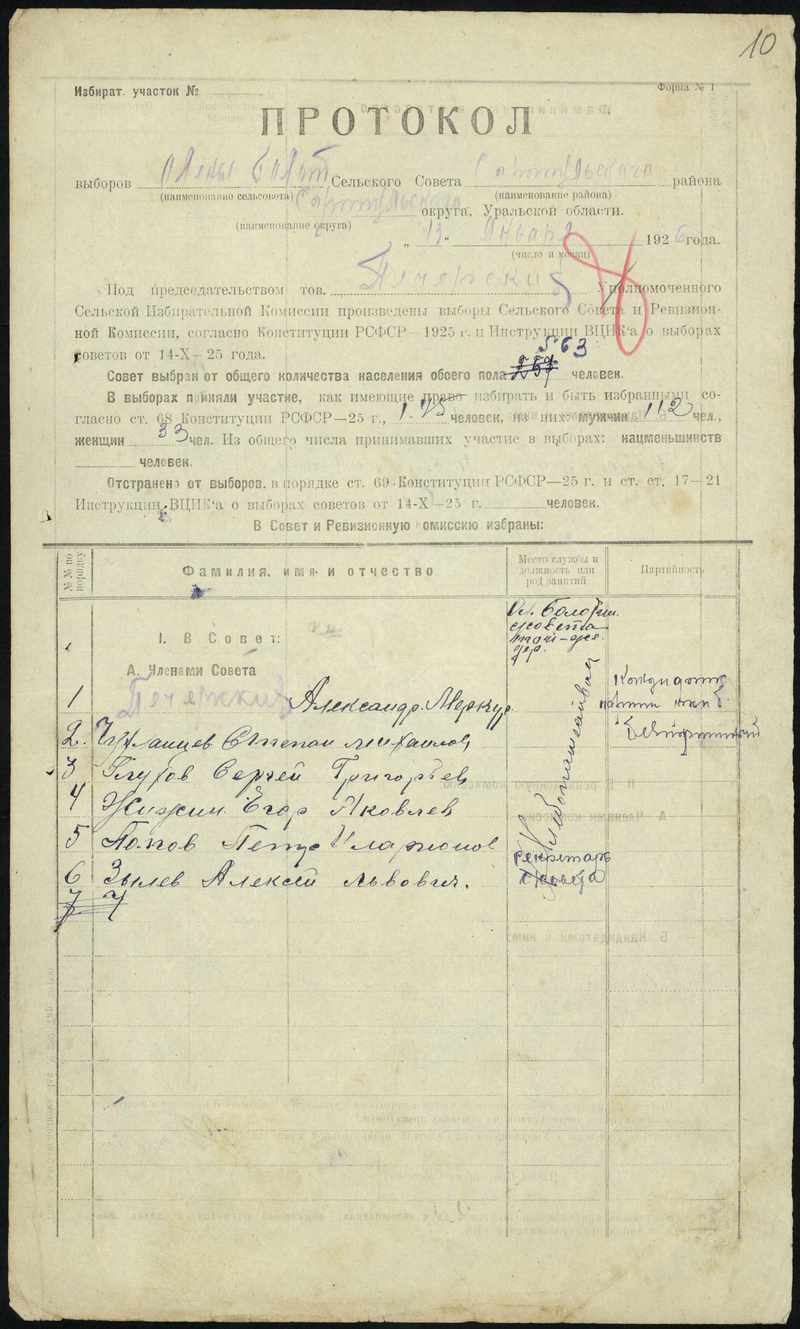 10
Избират. участок №
Форма № 1
ПРОТОКОЛ
выборов Сельского Совета района
(наименование сельсовета) (наименование района)
округа, Уральской области.
(наименование округа)
„ 13 “ Января 1926 года.
(число и месяц)
Под председательством тов. Печерский Уполномоченного
Сельской Избирательной Комиссии произведены выборы Сельского Совета и Ревизион-
ной Комиссии, согласно Конституции РСФСР—1925 г. и Инструкции ВЦИК'а о выборах
советов от 14-X—25 года.
563
Совет выбран от общего количества населения обоего пола человек.
В выборах приняли участие, как имеющие право избирать и быть избранными со-
гласно ст. 68 Конституции РСФСР—25 г., человек, из них: мужчин 112 чел.,
женщин 33 чел. Из общего числа принимавших участие в выборах: нацменьшинств
человек.
Отстранено от выборов, в порядке ст. 69 Конституции РСФСР—25 г. и ст. ст. 17—21
Инструкции ВЦИК'а о выборах советов от 14-X—25 г. человек.
В Совет и Ревизионную омисскию избраны:
№№ по порядку
Фамилия, имя и отчество
Место службы и должность или род занятий
Партийность
I. В Совет:
А. Членами Совета
1 Печерский Александр Меркур.
2. Степан Михайлов
3 Глухов Сергей Григорьев
4 Жижин Егор Яковлев
5 Попов Петр Иларионов
6 Зылев Алексей Львович.
секретарь
7